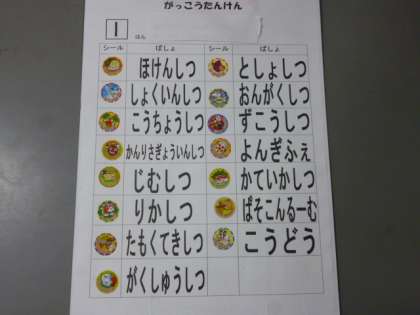 がっこうたんけん
1 はん
シール ばしょ シール ばしょ
ほけんしつ としょしつ
しょくいんしつ おんがくしつ
こうちょうしつ ずこうしつ
かんりさぎょういんしつ よんぎふぇ
じむしつ かていかしつ
りかしつ ぱそこんるーむ
たもくてきしつ こうどう
がくしゅうしつ